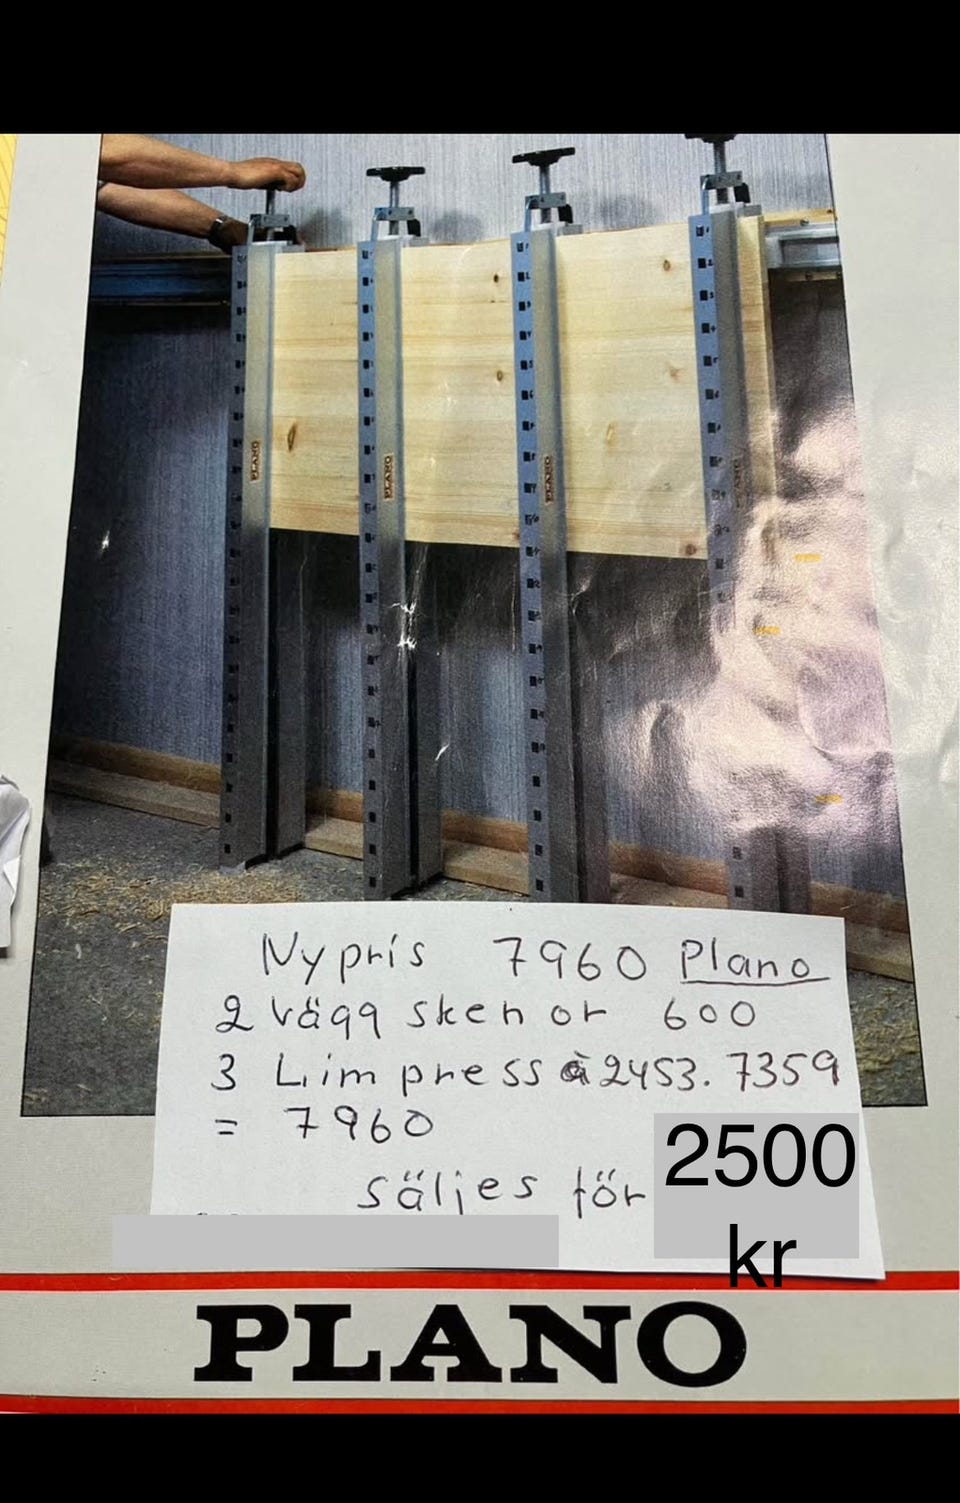 PLANO
PLANO
PLANO
PLANO
Nypris 7960 Plano
2 vägg skenor 600
3 Lim press à 2453. 7359
= 7960
säljes för 2500 kr
PLANO